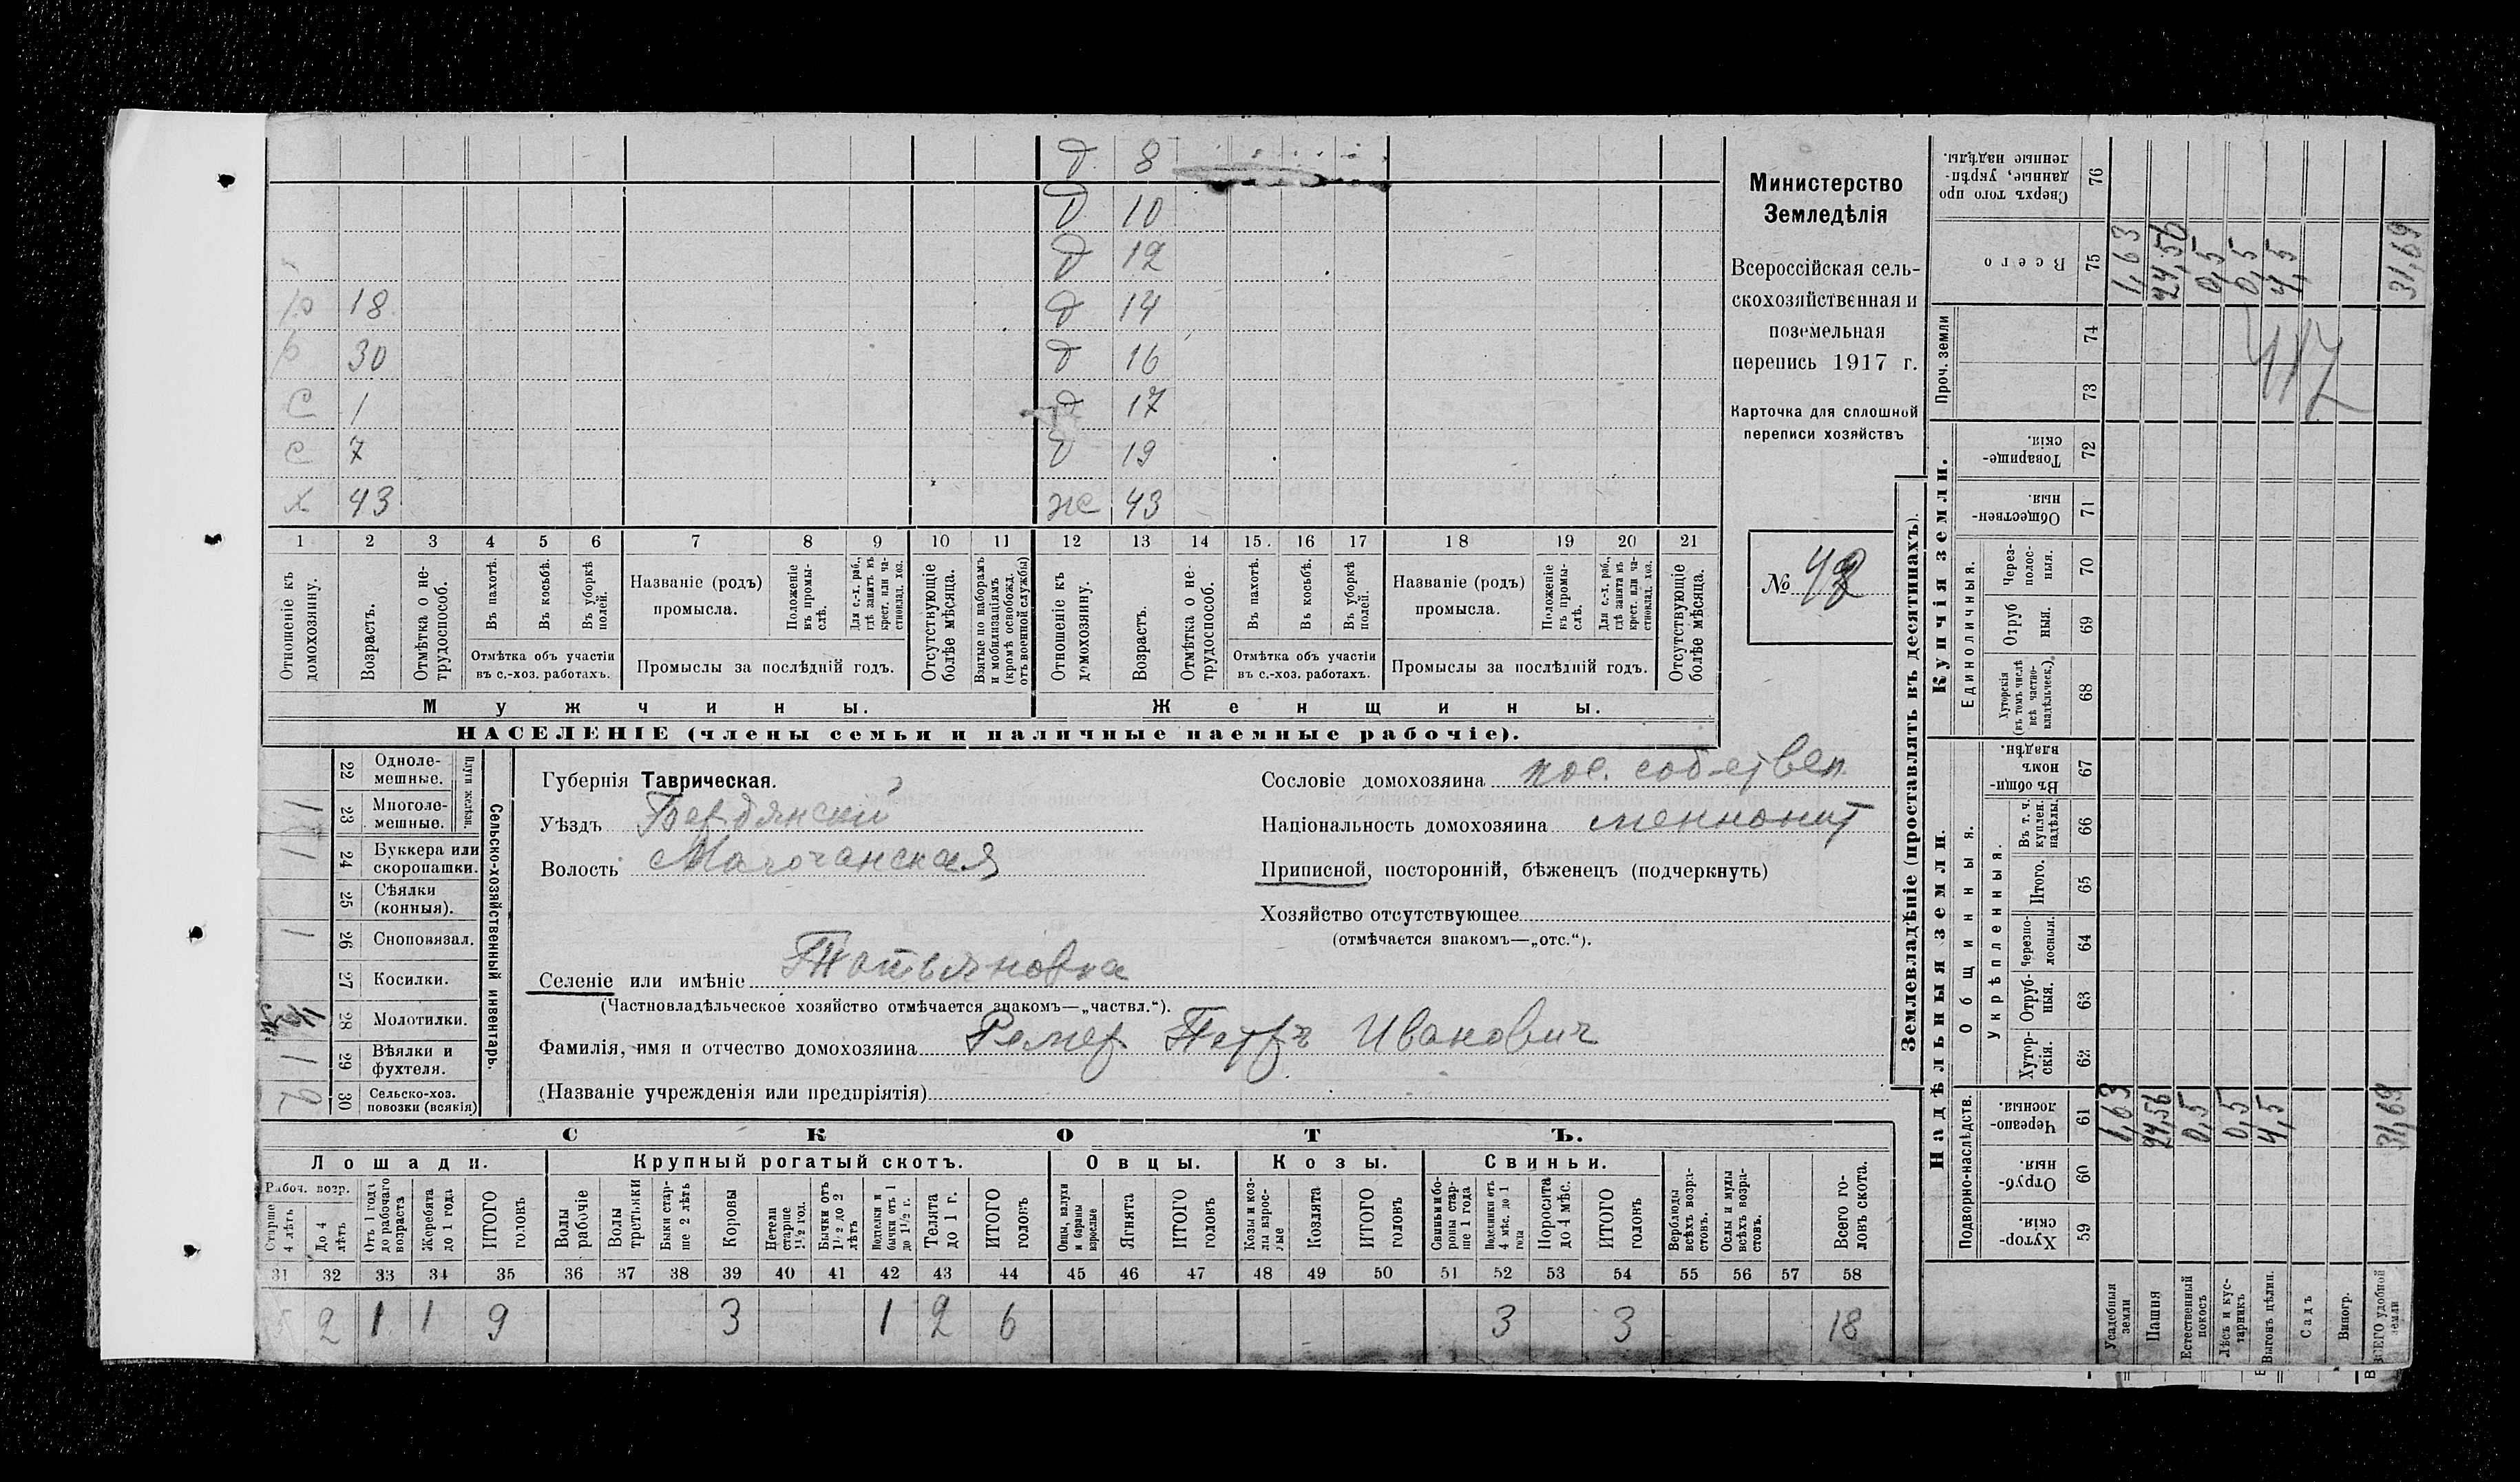 д 8
д 10
д 12
р 18 д 14
р 30 д 16
с 1 д 17
с 7 д 19
х 43 ж 43
1 2 3 4 5 6 7 8 9 10 11 12 13 14 15. 16 17 18 19 20 21
Отношеніе къ домохозяину.
Возрастъ.
Отмѣтка о не-трудоспособ.
Въ пахотѣ.
Въ косьбѣ.
Въ уборкѣ полей.
Отмѣтка объ участіи
въ с.-хоз. работахъ.
Названіе (родъ)
промысла.
Положеніе въ промы-слѣ.
Для с.-х. раб., гдѣ занятъ въ крест. или ча-стновлад. хоз.
Промыслы за послѣдній годъ.
Отсутствующіе болѣе мѣсяца.
Взятые по наборамъ и мобилизаціямъ (кромѣ освобожд. отъ военной службы)
Отношеніе къ домохозяину.
Возрастъ.
Отмѣтка о не-трудоспособ.
Въ пахотѣ.
Въ косьбѣ.
Въ уборкѣ полей.
Отмѣтка объ участіи
въ с.-хоз. работахъ.
Названіе (родъ)
промысла.
Положеніе въ промы-слѣ.
Для с.-х. раб., гдѣ занята въ крест. или ча-стновлад. хоз.
Промыслы за послѣдній годъ.
Отсутствующіе болѣе мѣсяца.
Мужчины.
Женщины.
НАСЕЛЕНІЕ (члены семьи и наличные наемные рабочіе).
Министерство
Земледѣлія
Всероссійская сель-
скохозяйственная и
поземельная
перепись 1917 г.
Карточка для сплошной
переписи хозяйствъ
№
Сельско-хозяйственный инвентарь.
Плуги желѣзн.
22 Одноле-мешные.
23 Многоле-мешные. 1
24 Буккера или скоропашки. 1
25 Сѣялки (конныя).
26 Сноповязал. 1
27 Косилки.
28 Молотилки.
29 Вѣялки и фухтеля. 1
30 Сельско-хоз. повозки (всякія)
Губернія Таврическая.
Уѣздъ Бердянский
Волость Молочанская
Селеніе или имѣніе Тотьяновка
(Частновладѣльческое хозяйство отмѣчается знакомъ—„частвл.“).
Фамилія, имя и отчество домохозяина Ремер Петръ Иванович
(Названіе учрежденія или предпріятія)
Сословіе домохозяина пос. собствен
Національность домохозяина меннонит
Приписной, посторонній, бѣженецъ (подчеркнуть)
Хозяйство отсутствующее
(отмѣчается знакомъ—„отс.“).
СКОТЪ.
Лошади. Крупный рогатый скотъ. Овцы. Козы. Свиньи.
Рабоч. возр.
Старше 4 лѣтъ
До 4 лѣтъ
Отъ 1 года до рабочаго возраста
Жеребята до 1 года
ИТОГО головъ
Волы рабочіе
Волы третьяки
Быки стар-ше 2 лѣтъ
Коровы
Нетели старше 1½ год.
Бычки отъ 1½ до 2 лѣтъ
Подтелки и бычки отъ 1 до 1½ г.
Телята до 1 г.
ИТОГО головъ
Овцы, валухи и бараны взрослые
Ягнята
ИТОГО головъ
Козы и коз-лы взрос-лые
Козлята
ИТОГО головъ
Свиньи и бо-ровы стар-ше 1 года
Подсвинки отъ 4 мѣс. до 1 года
Поросята до 4 мѣс.
ИТОГО головъ
Верблюды всѣхъ возра-стовъ.
Ослы и мулы всѣхъ возра-стовъ.
Всего го-ловъ скота.
31 32 33 34 35 36 37 38 39 40 41 42 43 44 45 46 47 48 49 50 51 52 53 54 55 56 57 58
5 2 1 1 9 3 1 2 6 3 3 18
Землевладѣніе (проставлять въ десятинахъ).
Надѣльныя земли.
Купчія земли.
Проч. земли
Подворно-наслѣдств.
Общинныя.
Укрѣпленныя.
Единоличныя.
Хутор-скія. 59
Отруб-ныя. 60
Черезпо-лосныя. 61
Хутор-скія. 62
Отруб-ныя. 63
Черезпо-лосныя. 64
Итого. 65
Въ т. ч. куплен. надѣлы. 66
Въ общи-номъ владѣн. 67
Хуторскія (въ томъ числѣ всѣ частно-владѣльческ.). 68
Отруб ныя. 69
Через-полос-ныя. 70
Обществен-ныя. 71
Товарище-скія. 72
73
74
Всего 75
Сверхъ того про данные, укрѣп-ленные надѣлы. 76
Усадебныя земли 1,63 1,63
Пашня 24,56 24,56
Естественный покосъ 0,5 0,5
Лѣсъ и кус-тарникъ 0,5 0,5
Выгонъ цѣлин. 4,5 4,5
Садъ
Виногр.
ВСЕГО удобной земли 31,69 31,69